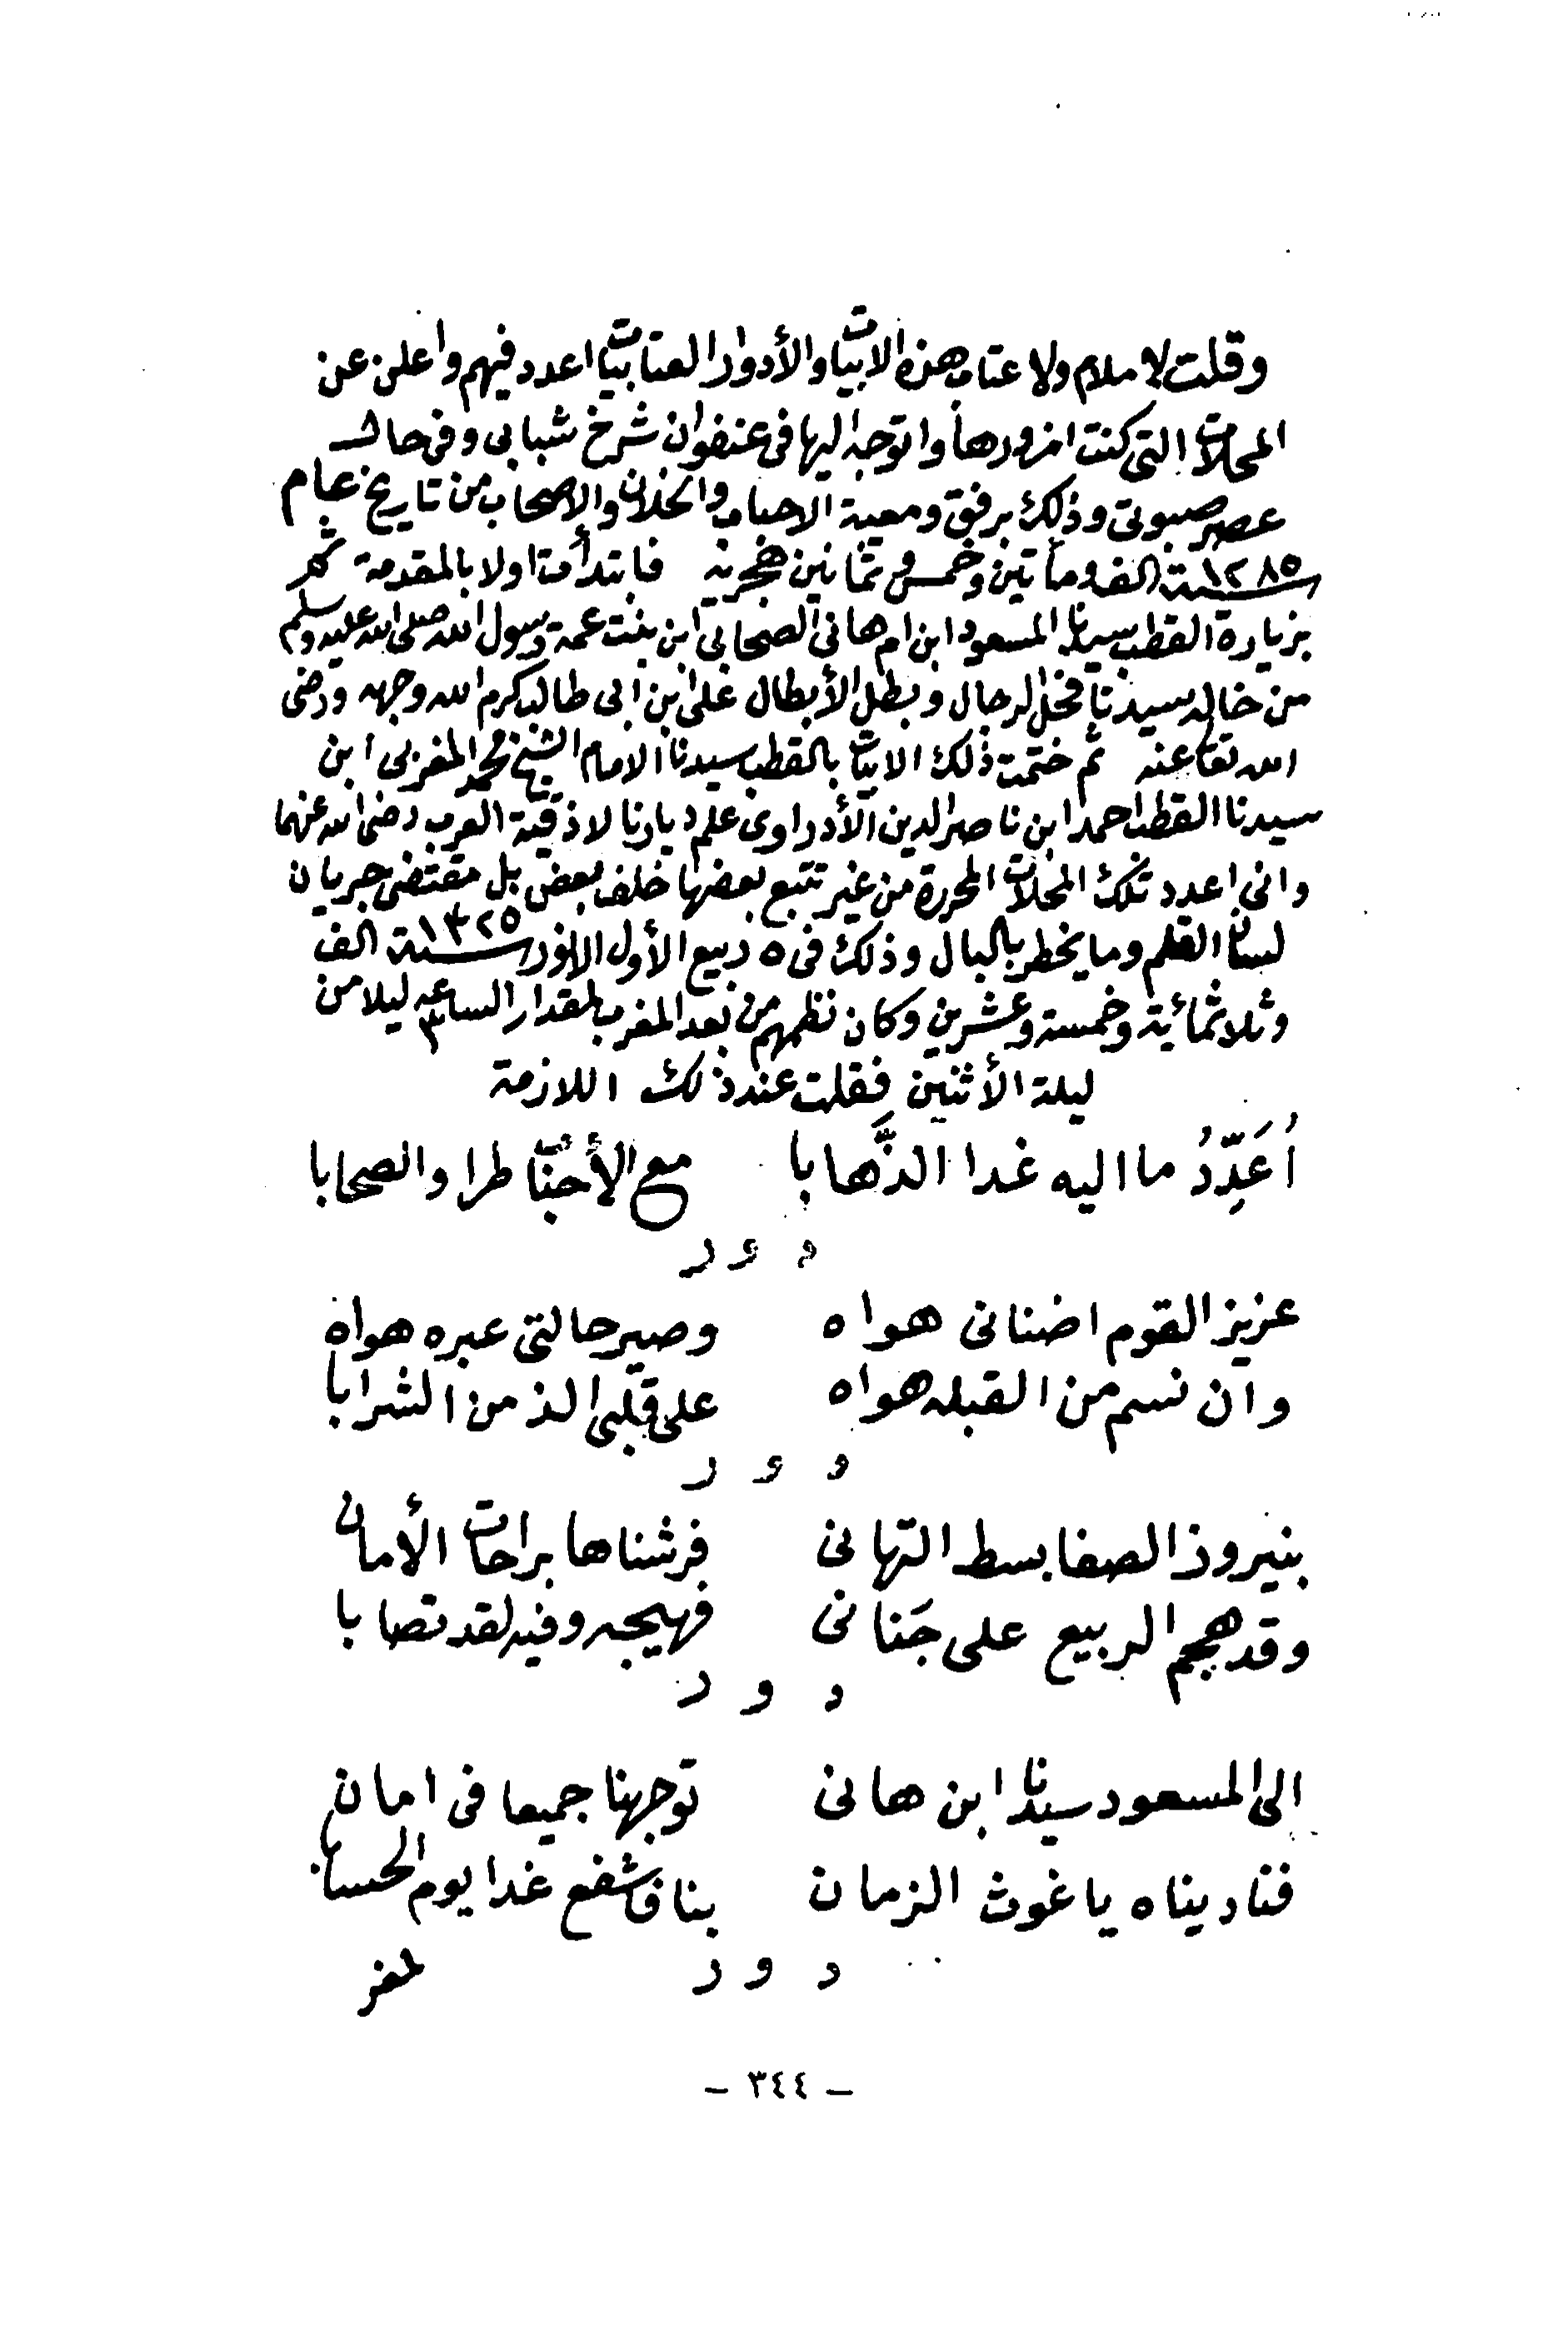 وقلت لا ملام ولا عتاب هذه الابيات والأدوار العتابيات اعدد فيهم واعلن عن
المحلات التي كنت ازورها واتوجه اليها في عنفوان شرخ شبابي وفي حال
عصر صبوتي وذلك برفق ومعية الاحباب والخلان والاصحاب من تاريخ عام
١٢٨٥ سنة الف وماتين وخمس وثمانين هجرية فابتدأت اولا بالمقدمة ثم
بزيارة القطب سيدنا المسعود ابن ام هاني الصحابي ابن بنت عمة رسول الله صلى الله عليه وسلم
من خاله سيدنا فحل الرجال وبطل الأبطال على ابن ابى طالب كرم الله وجهه ورضى
الله تعالى عنه ثم ختمت ذلك الابيات بالقطب سيدنا الامام الشيخ محمد المغربي ابن
سيدنا القطب احمد ابن ناصر الدين الأدراوى علم ديارنا لاذقية العرب رضى الله عنهما
واني اعدد تلك المحلات المحررة من غير تتبع بعضها خلف بعض بل مقتضى جريان
لسان القلم وما يخطر بالبال وذلك في ٥ ربيع الأول الانور سنة ١٣٢٥ الف
وثلاثمائية وخمسة وعشرين وكان نظمهم من بعد المغرب لمقدار الساعه ٣ ليلا من
ليلة الأثنين فقلت عند ذلك اللازمة
أُعَدِّدُ ما اليه غدا الذَّهابا مع الأحبّا طرا والصحابا
دور
عزيز القوم اضناني هواه وصير حالتي عبره هواه
وان نسم من القبله هواه على قلبي الذ من الشرابا
دور
بنيروز الصفا بسط التهاني فرشناها براحات الأمان
وقد هجم الربيع على جَناني فهيجه وفيه لقد تصابا
دور
الى المسعود سيدنا ابن هاني توجهنا جميعا في امان
فناديناه يا غوث الزمان بنا فاشفع غدا يوم الحساب
دور لمغر
– ٣٤٤ –